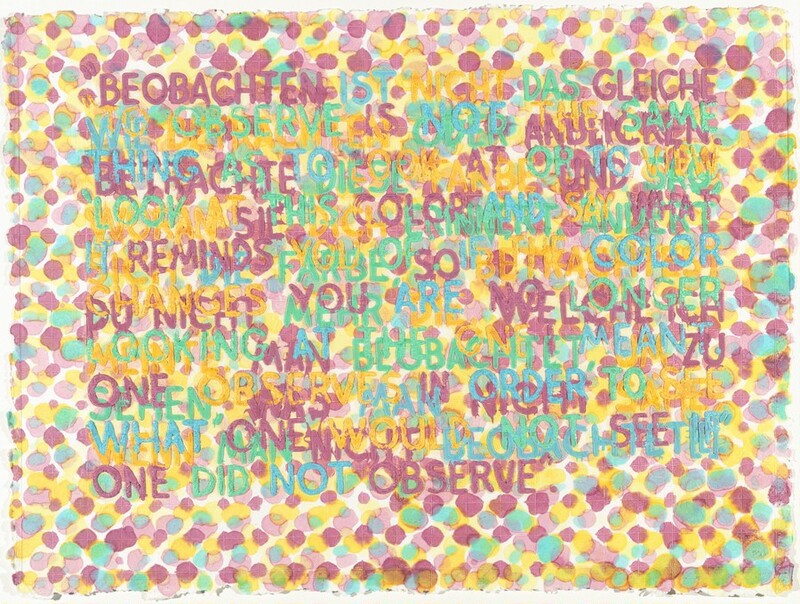 BEOBACHTEN IST NICHT DAS GLEICHE
OBSERVE IS NOT THE SAME
ODER ANBLICKEN.
THING AS TO LOOK AT OR TO VIEW
BETRACHTE DIESE FARBE UND
LOOK AT THIS COLOR AND SAY WHAT
SIE DICH ERINNERT
IT REMINDS YOU OF IF THE COLOR
DIE FARBE SO
CHANGES YOU ARE NO LONGER
DU NICHT MEHR WELCHE ICH
LOOKING AT THE ONE I MEANT
MAN BEOBACHTET, ZU
ONE OBSERVES IN ORDER TO SEE
SEHEN, WAS MAN NICHT
WHAT ONE WOULD NOT SEE IF
MAN NICHT BEOBACHTET
ONE DID NOT OBSERVE